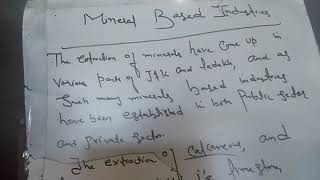 Mineral Based Industries
The extraction of minerals have come up in
various parts of J&K and Ladakh, and as
Such many minerals based industries
have been established in both Public Sector
and Private Sector.
The extraction of calcareous, and
limestone